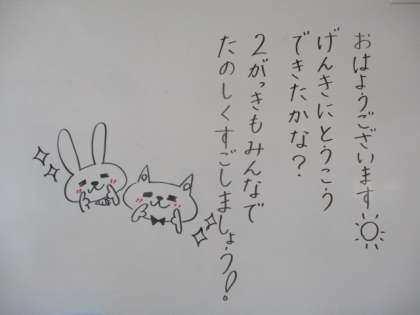 おはようございます
げんきにとうこう
できたかな？
2がっきもみんなで
たのしくすごしましょう！